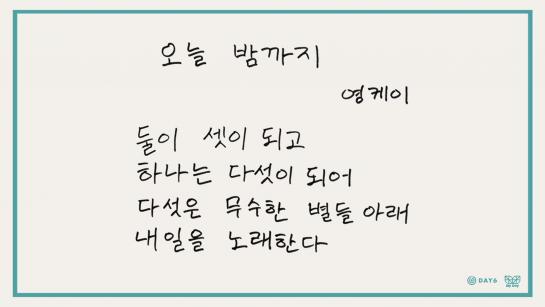 오늘 밤까지
영케이
둘이 셋이 되고
하나는 다섯이 되어
다섯은 무수한 별들 아래
내일을 노래한다
DAY6